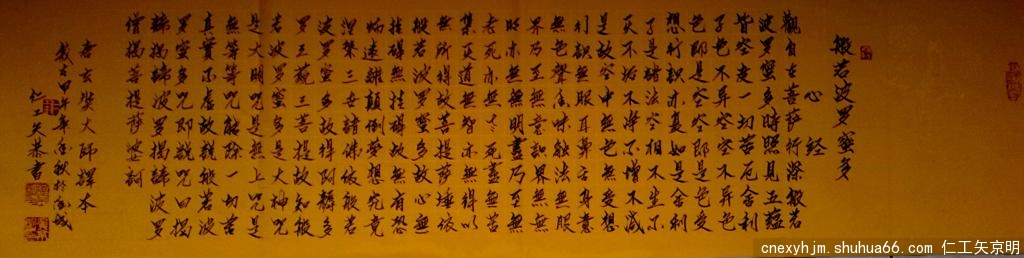 般若波罗蜜多
心经
觀自在菩萨行深般若
波罗蜜多時照見五蕴
皆空度一切苦厄舍利
子色不异空空不异色
色即是空空即是色受
想行识亦复如是舍利
子是諸法空相不生不
灭不垢不净不增不减
是故空中無色無受想
行识無眼耳鼻舌身意
無色聲香味触法無眼
界乃至無意識界無無
明亦無無明盡乃至無
老死亦無老死盡無苦
集灭道無智亦無得以
無所得故菩提萨埵依
般若波罗蜜多故心無
挂碍無挂碍故無有恐
怖遠離颠倒夢想究竟
涅槃三世諸佛依般若
波罗蜜多故得阿耨多
罗三藐三菩提故知般
若波罗蜜多是大神咒
是大明咒是無上咒是
無等等咒能除一切苦
真實不虚故說般若波
罗蜜多咒即說咒曰揭
諦揭諦波罗揭諦波罗
僧揭諦菩提萨婆訶
唐玄奘大師譯本
甲午年秋於
仁工矢恭書
cnexyhjm.shuhua66.com 仁工矢京明